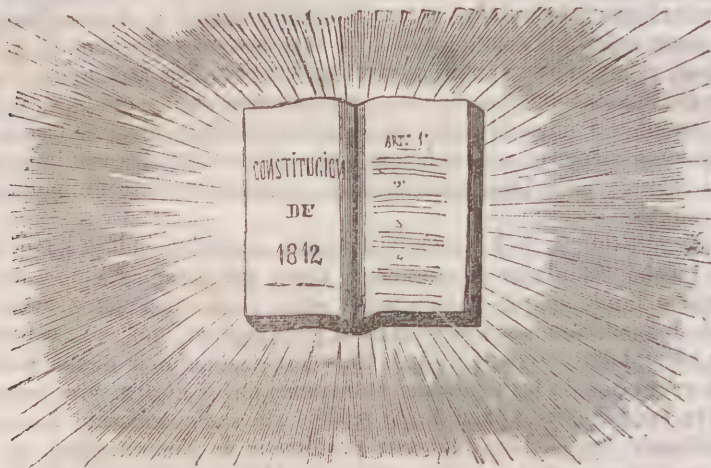 CONSTİTUCİON
DE
1812
ART.º 1º
2º
3
4